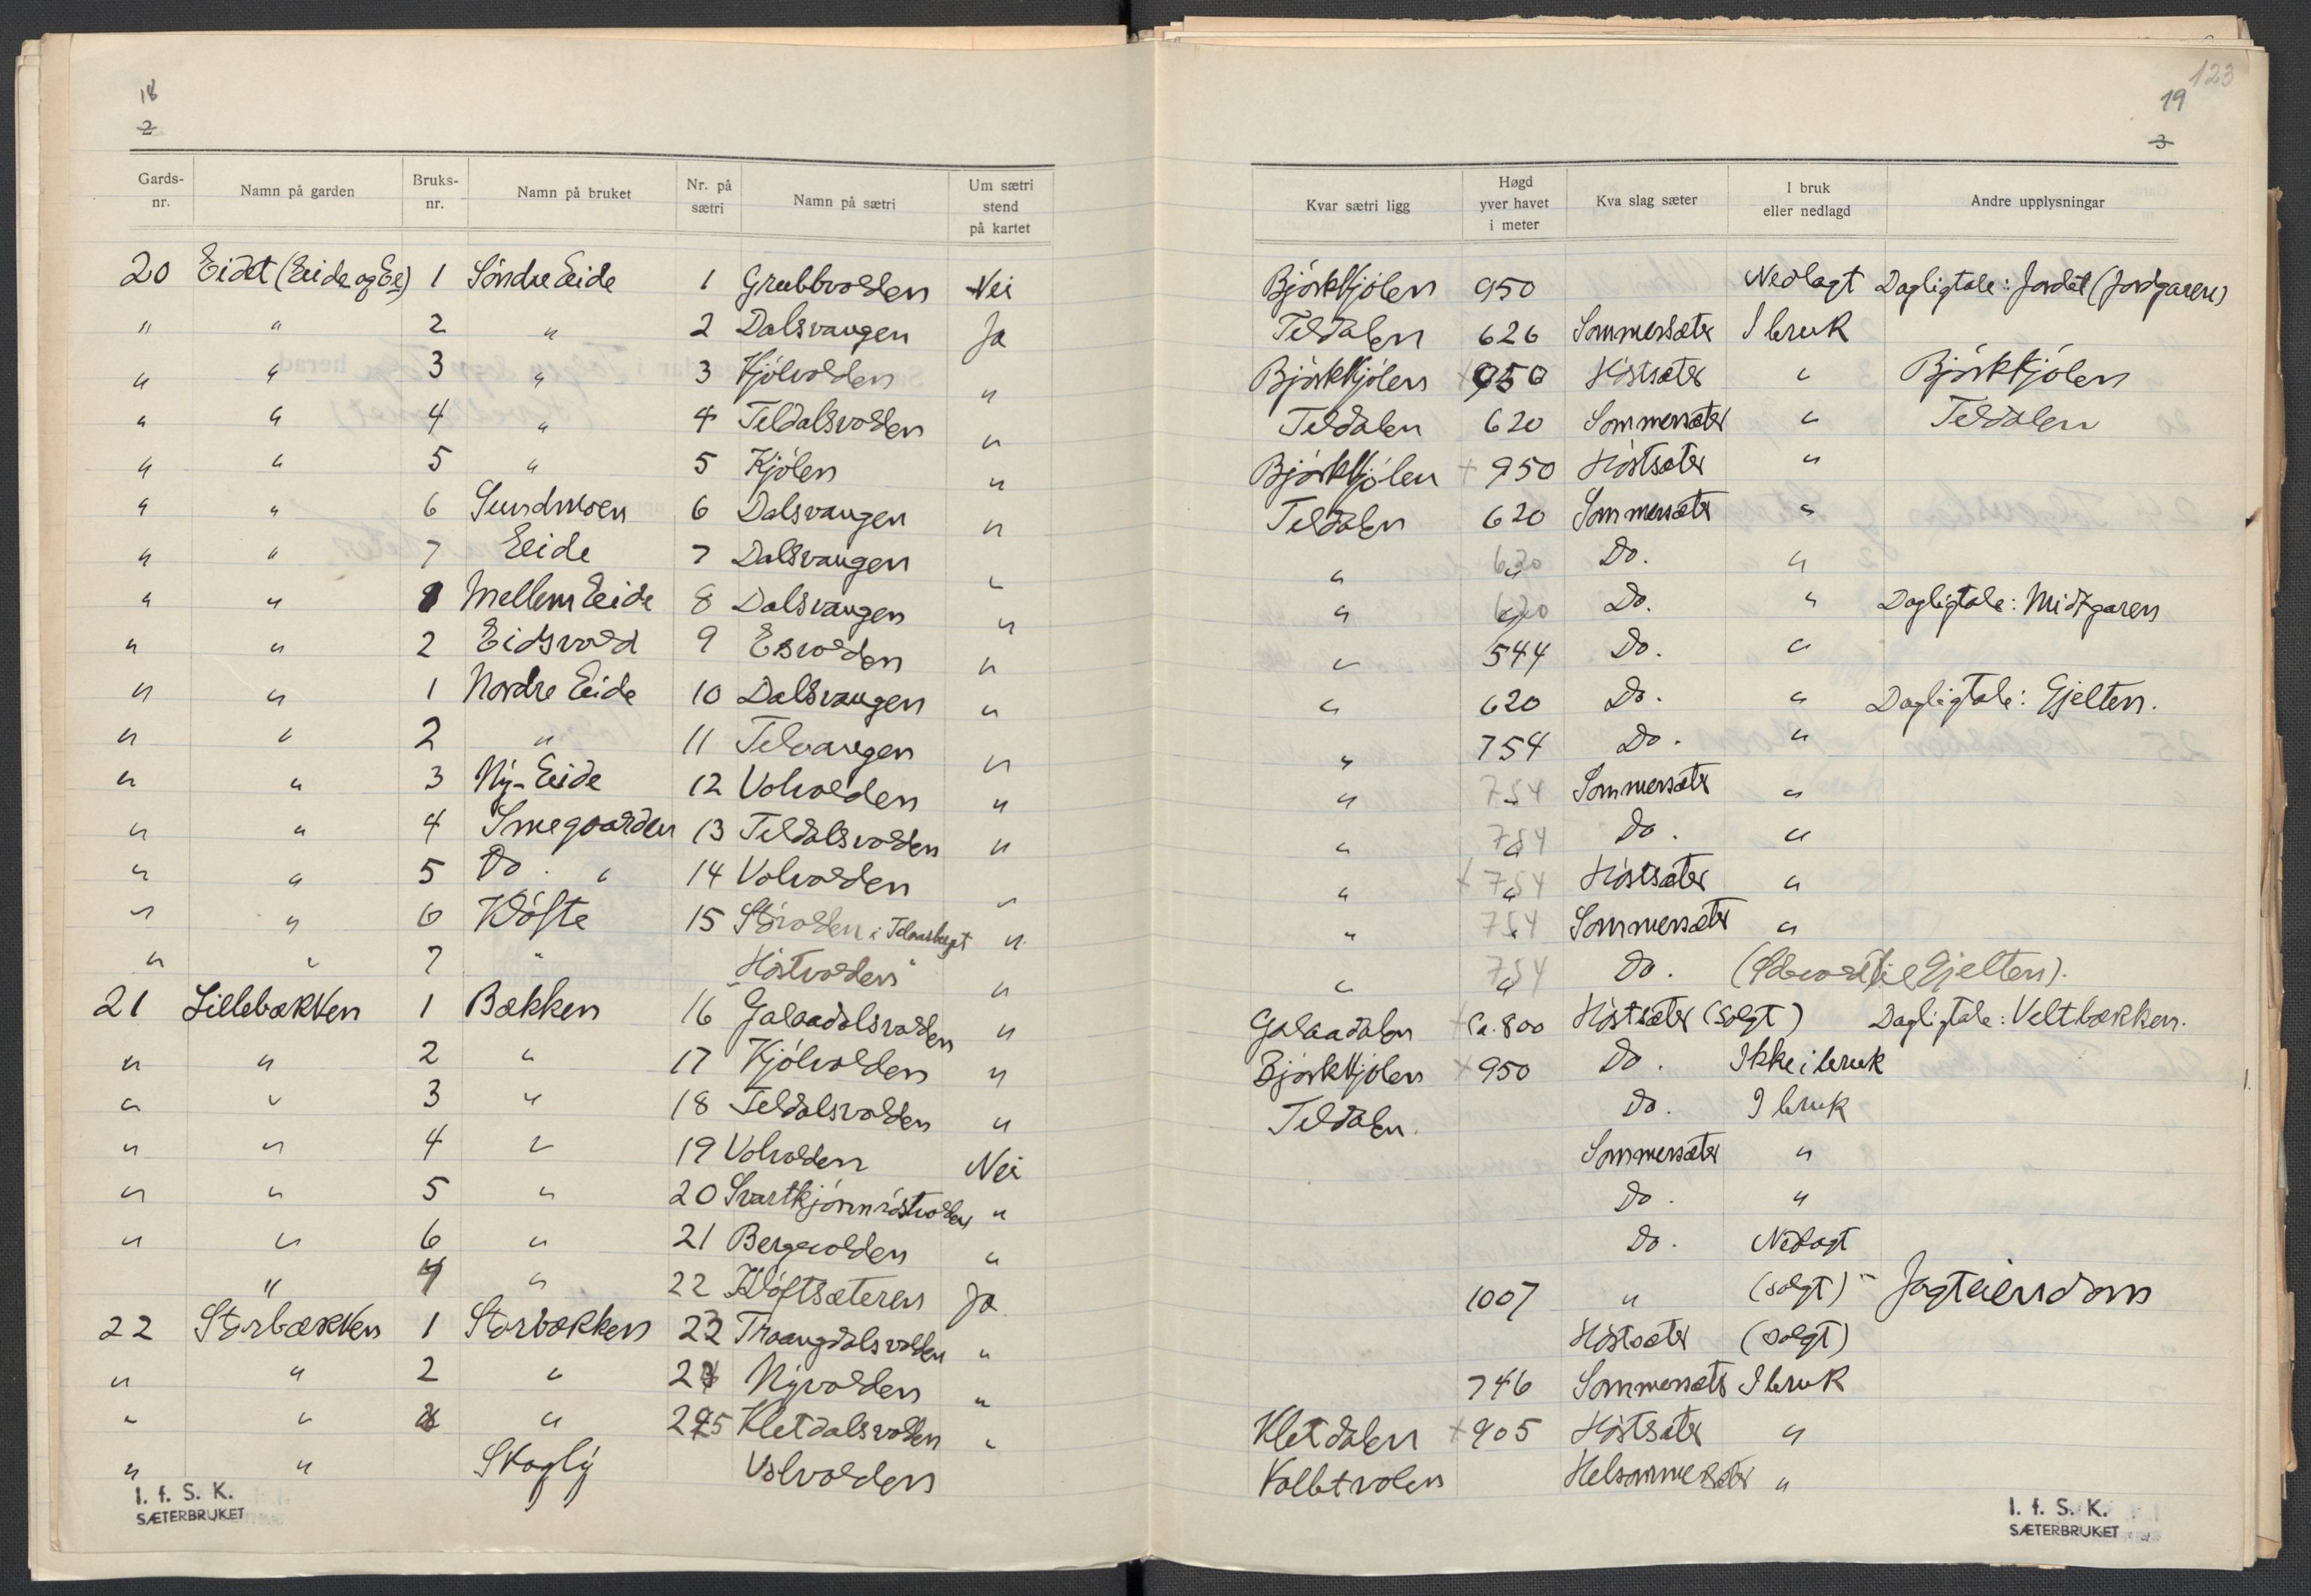 18
2
Gards-nr. Namn på garden Bruks-nr. Namn på bruket Nr. på sætri Namn på sætri Um sætri stend på kartet
20 Eidet (Eide og Ei) 1 Söndre Eide 1 Grubbvolden Nei
" " 2 " 2 Dalsvangen Ja
" " 3 " 3 Kjölvolden "
" " 4 " 4 Teldalsvolden "
" " 5 " 5 Kjölen "
" " 6 Sundmoen 6 Dalsvangen "
" " 7 Eide 7 Dalsvangen "
" " 1 Mellem Eide 8 Dalsvangen "
" " 2 Eidsvold 9 Esvolden "
" " 1 Nordre Eide 10 Dalsvangen "
" " 2 " 11 Telvangen "
" " 3 Ny-Eide 12 Volvolden "
" " 4 Smegaarden 13 Teldalsvolden "
" " 5 Do. " 14 Volvolden "
" " 6 Klöfte 15 Storvolden i "
" " 7 " Höstvolden "
21 Lillebækken 1 Bækken 16 Galaadalsvolden "
" " 2 " 17 Kjölvolden "
" " 3 " 18 Teldalsvolden "
" " 4 " 19 Volvolden Nei
" " 5 " 20 "
" " 6 " 21 Bergevolden "
" 7 " 22 Klöftsæteren Ja
22 Storbækken 1 Storbækken 23 Traangdalsvolden "
" " 2 " 24 Nyvolden "
" " " 25 Kletdalsvolden "
" " Skogly Volvolden
I. f. S. K.
SÆTERBRUKET
123
19
3
Kvar sætri ligg Høgd yver havet i meter Kva slag sæter I bruk eller nedlagd Andre upplysningar
Björkkjölen 950 Nedlagt Dagligtale: Jordet (Jordgaren)
Teldalen 626 Sommersæter I bruk
Björkkjölen +950 Höstsæter " Björkkjölen
Teldalen 620 Sommersæter " Teldalen
Björkkjölen +950 Höstsæter "
Teldalen 620 Sommersæter "
" 620 Do. "
" 620 Do. " Dagligtale: Midtgaren
" 544 Do. "
" 620 Do. " Dagligtale: Gjelten.
" 754 Do. "
" 754 Sommersæter "
" 754 Do. "
" +754 Höstsæter "
" 754 Sommersæter "
" 754 Do. Gjelten).
Galaadalen +Ca. 800 Höstsæter (solgt) Dagligtale: Veltbækken.
Björkkjölen +950 Do. Ikke i bruk
Teldalen. Do. I bruk
Sommersæter "
Do. "
Do. Nedlagt
1007 " (solgt) - Jagteiendom
Höstsæter (solgt)
746 Sommersæter I bruk
Kletdalen +905 Höstsæter "
Helsommersæter "
I. f. S. K.
SÆTERBRUKET